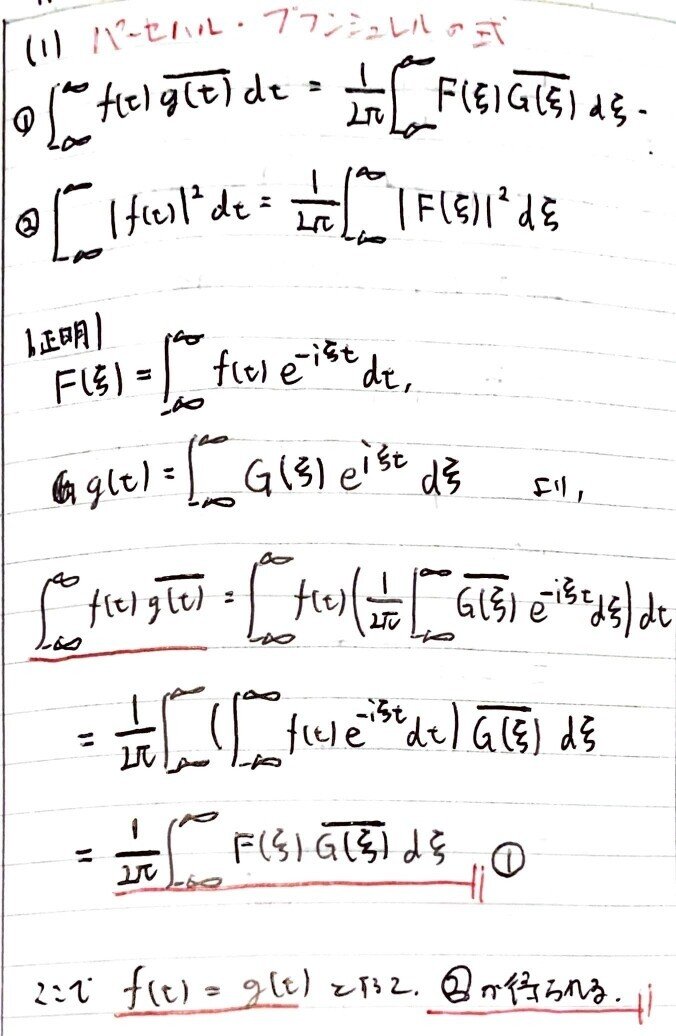 (1) パーセバル・プランシュレルの式
① ∫_{-∞}^{∞} f(t) \overline{g(t)} dt = \frac{1}{2π} ∫_{-∞}^{∞} F(ξ) \overline{G(ξ)} dξ.
② ∫_{-∞}^{∞} |f(t)|^2 dt = \frac{1}{2π} ∫_{-∞}^{∞} |F(ξ)|^2 dξ
証明
F(ξ) = ∫_{-∞}^{∞} f(t) e^{-iξt} dt,
g(t) = ∫_{-∞}^{∞} G(ξ) e^{iξt} dξ より,
∫_{-∞}^{∞} f(t) \overline{g(t)} = ∫_{-∞}^{∞} f(t) ( \frac{1}{2π} ∫_{-∞}^{∞} \overline{G(ξ)} e^{-iξt} dξ ) dt
= \frac{1}{2π} ∫_{-∞}^{∞} ( ∫_{-∞}^{∞} f(t) e^{-iξt} dt ) \overline{G(ξ)} dξ
= \frac{1}{2π} ∫_{-∞}^{∞} F(ξ) \overline{G(ξ)} dξ ①
ここで f(t) = g(t) として. ②が得られる.